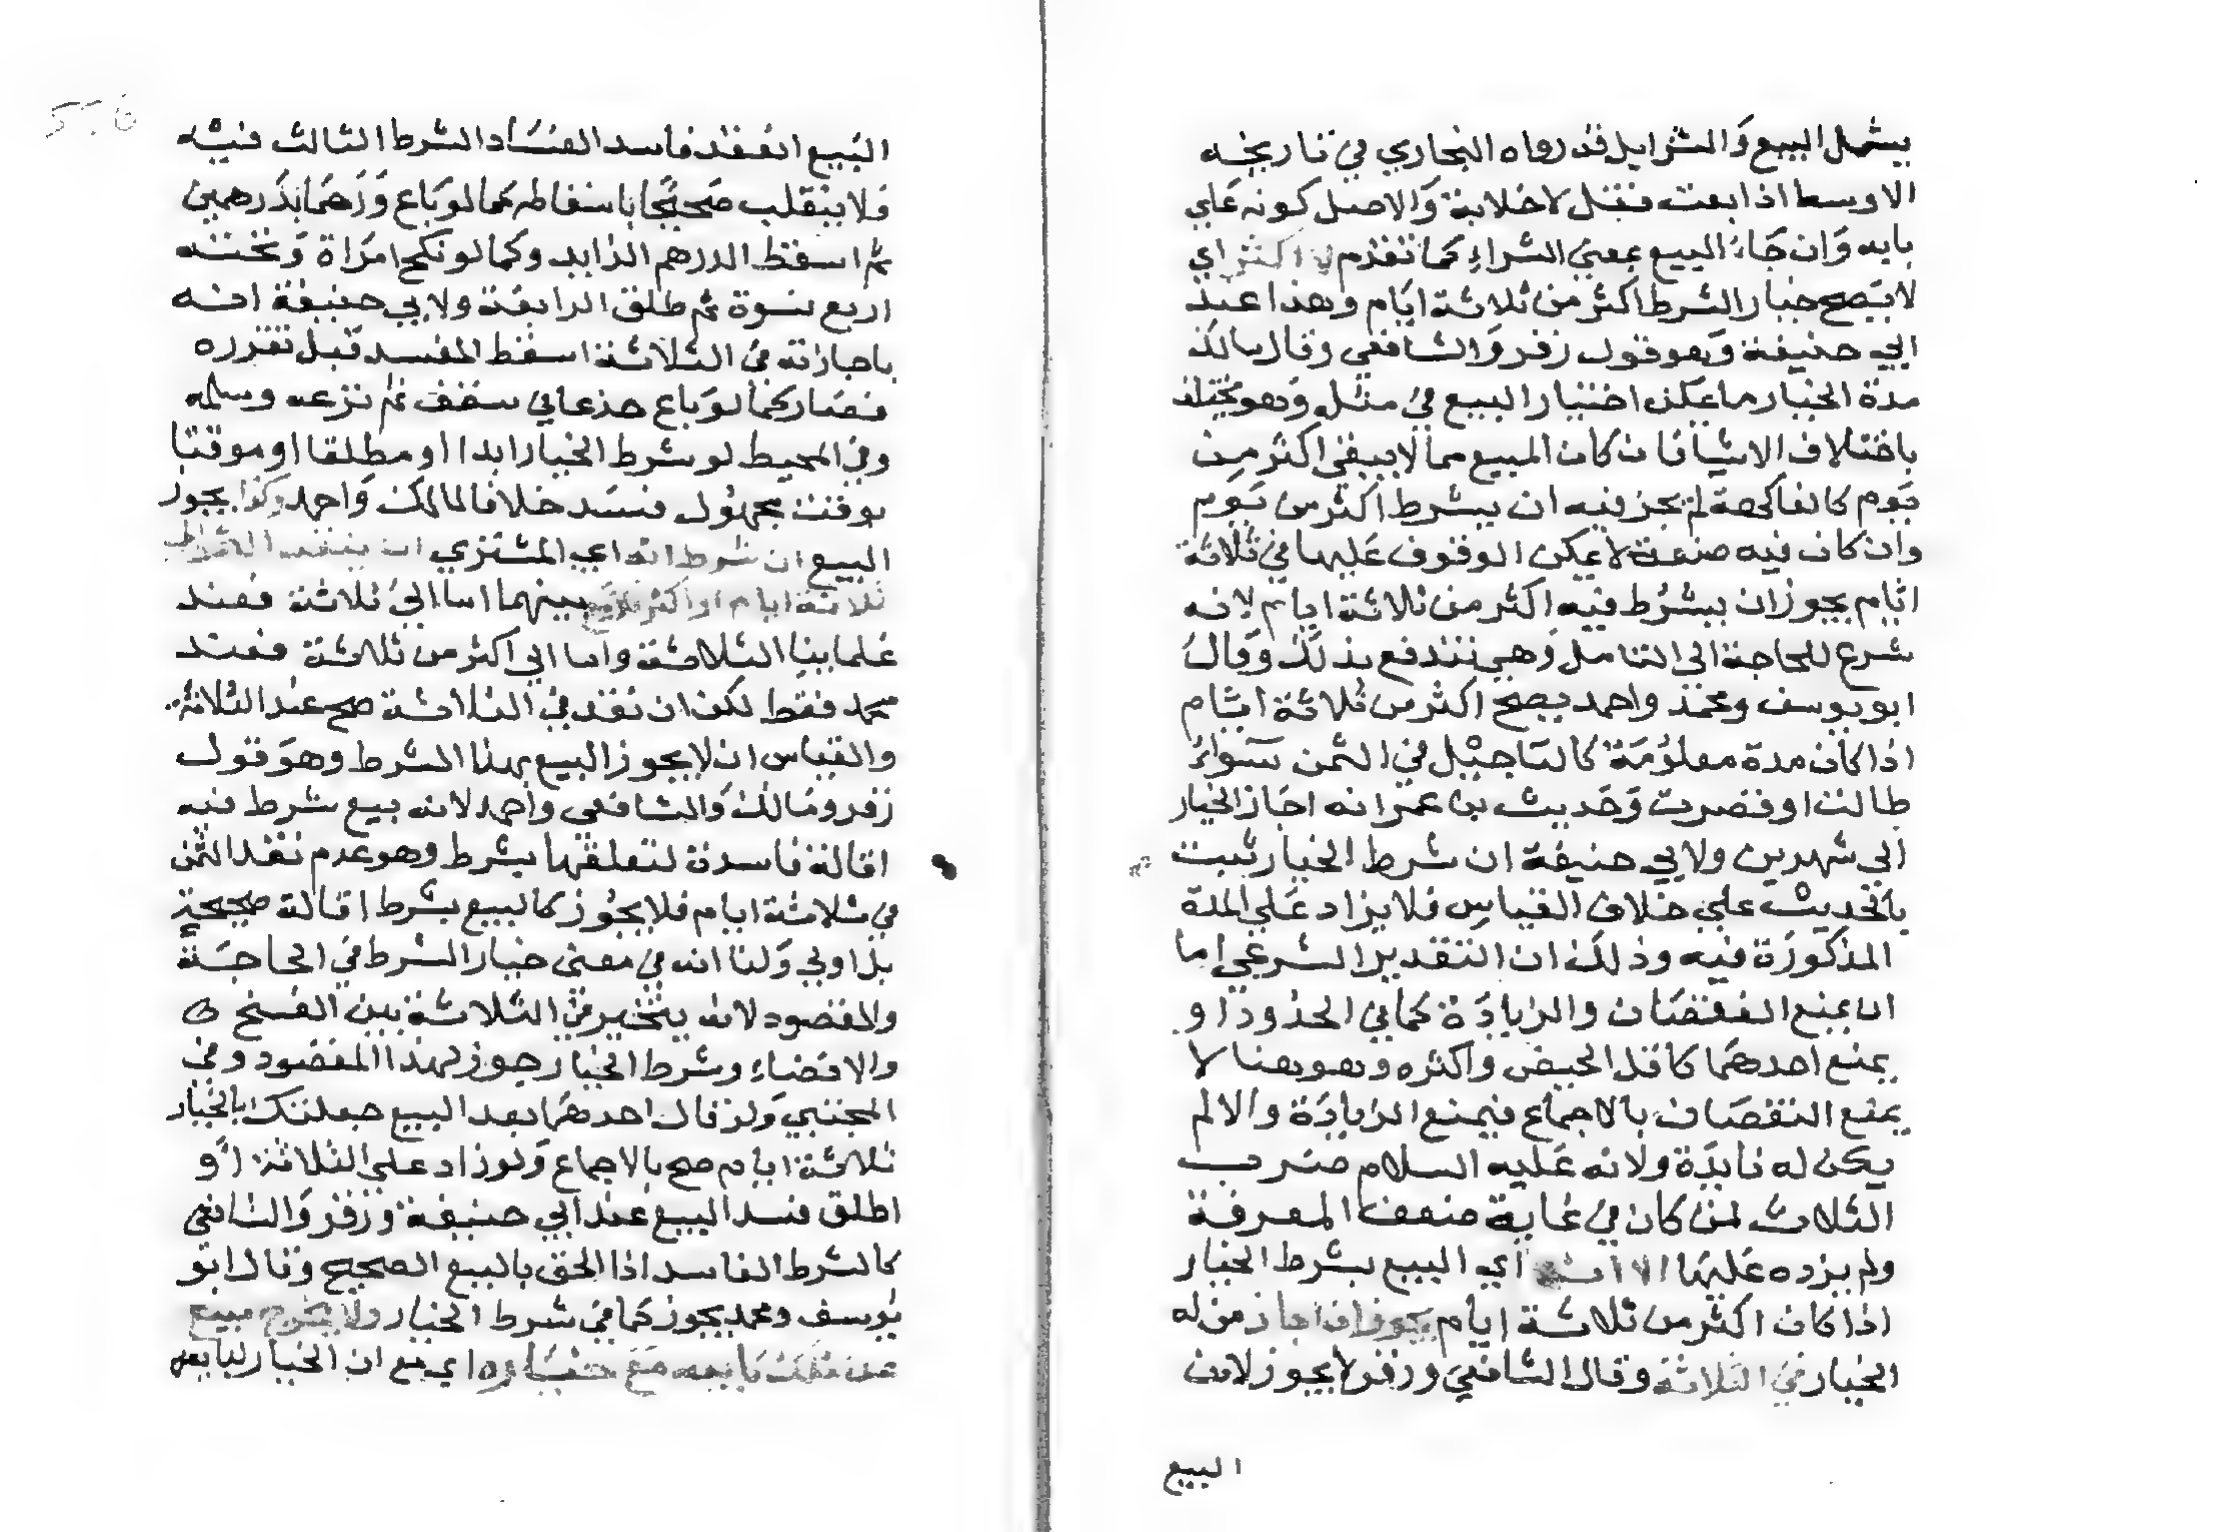 يشمل البيع والشرا بل قد رواه البخاري في تاريخه
الاوسط اذا بعت فقل لا خلابة والاصل كونه علي
بابه وان جاء البيع بمعني الشراء كما تقدم لا اكثر اي
لا يصح خيار الشرط اكثر من ثلاثة ايام وهذا عند
ابي حنيفة وهو قول زفر والشافعي وقال مالك
مدة الخيار ما يمكن اختيار البيع في مثله وهو يختلف
باختلاف الاشيا فان كان المبيع مما لا يبقي اكثر من
يوم كالفاكهة لم يجز فيه ان يشرط اكثر من يوم
وان كان فيه صنعة لا يمكن الوقوف عليها في ثلاثة
ايام يجوز ان يشرط فيه اكثر من ثلاثة ايام لانه
شرع للحاجة الى التامل وهي تندفع بذلك وقال
ابو يوسف ومحمد واحمد يصح اكثر من ثلاثة ايام
اذا كان مدة معلومة كالتاجيل في الثمن سواء
طالت او قصرت وحديث بن عمر انه اجاز الخيار
الى شهرين ولابي حنيفة ان شرط الخيار ثبت
بالحديث علي خلاف القياس فلا يزاد على المدة
المذكورة فيه وذلك ان التقدير الشرعي اما
ان يمنع النقصان والزيادة كما في الحدود او
يمنع احدهما كاقل الحيض واكثره وهو هنا لا
يمنع النقصان بالاجماع فيمنع الزيادة والا لم
يكن له فايدة ولانه عليه السلام ضرب
الثلاث لمن كان في غاية ضعف المعرفة
ولم يزده عليها الا انه اي البيع بشرط الخيار
اذا كان اكثر من ثلاثة ايام يجوز ان اجاز من له
الخيار في الثلاثة وقال الشافعي وزفر لا يجوز لان
البيع
البيع انعقد فاسد الفساد الشرط الثالث فيه
فلا ينقلب صحيحا باسقاطه كما لو باع درهما بدرهمين
ثم اسقط الدرهم الزايد وكما لو نكح امراة وتحته
اربع نسوة ثم طلق الرابعة ولابي حنيفة انه
باجازته في الثلاثة اسقط المفسد قبل تقرره
فصار كما لو باع جذعا في سقف ثم نزعه وسلمه
وفي المحيط لو شرط الخيار ابدا او مطلقا او موقتا
بوقت مجهول فسد خلافا لمالك واحمد وكذا يجوز
البيع ان شرط انه اي المشتري ان لم ينقد الثمن الى
ثلاثة ايام او اكثر فلا بيع بينهما اما الي ثلاثة فعند
علماينا الثلاثة واما الي اكثر من ثلاثة فعند
محمد فقط لكن ان نقد في الثلاثة صح عند الثلاثة
والقياس ان لا يجوز البيع بهذا الشرط وهو قول
زفر ومالك والشافعي واحمد لانه بيع شرط فيه
اقالة فاسدة لتعلقها بشرط وهو عدم نقد الثمن
في ثلاثة ايام فلا يجوز كالبيع بشرط اقالة صحيحة
بل اولي ولنا انه في معني خيار الشرط في الحاجة
والمقصود لانه يتخير في الثلاثة بين الفسخ
والامضاء وشرط الخيار جوز لهذا المقصود وفي
المجتبي ولو قال احدهما بعد البيع جعلتك بالخيار
ثلاثة ايام صح بالاجماع ولو زاد على الثلاثة او
اطلق فسد البيع عند ابي حنيفة وزفر والشافعي
كالشرط الفاسد اذا الحق بالبيع الصحيح وقال ابو
يوسف ومحمد يجوز كما في شرط الخيار ولا يخرج مبيع
عن ملك بايعه مع خياره اي مع ان الخيار لبايعه